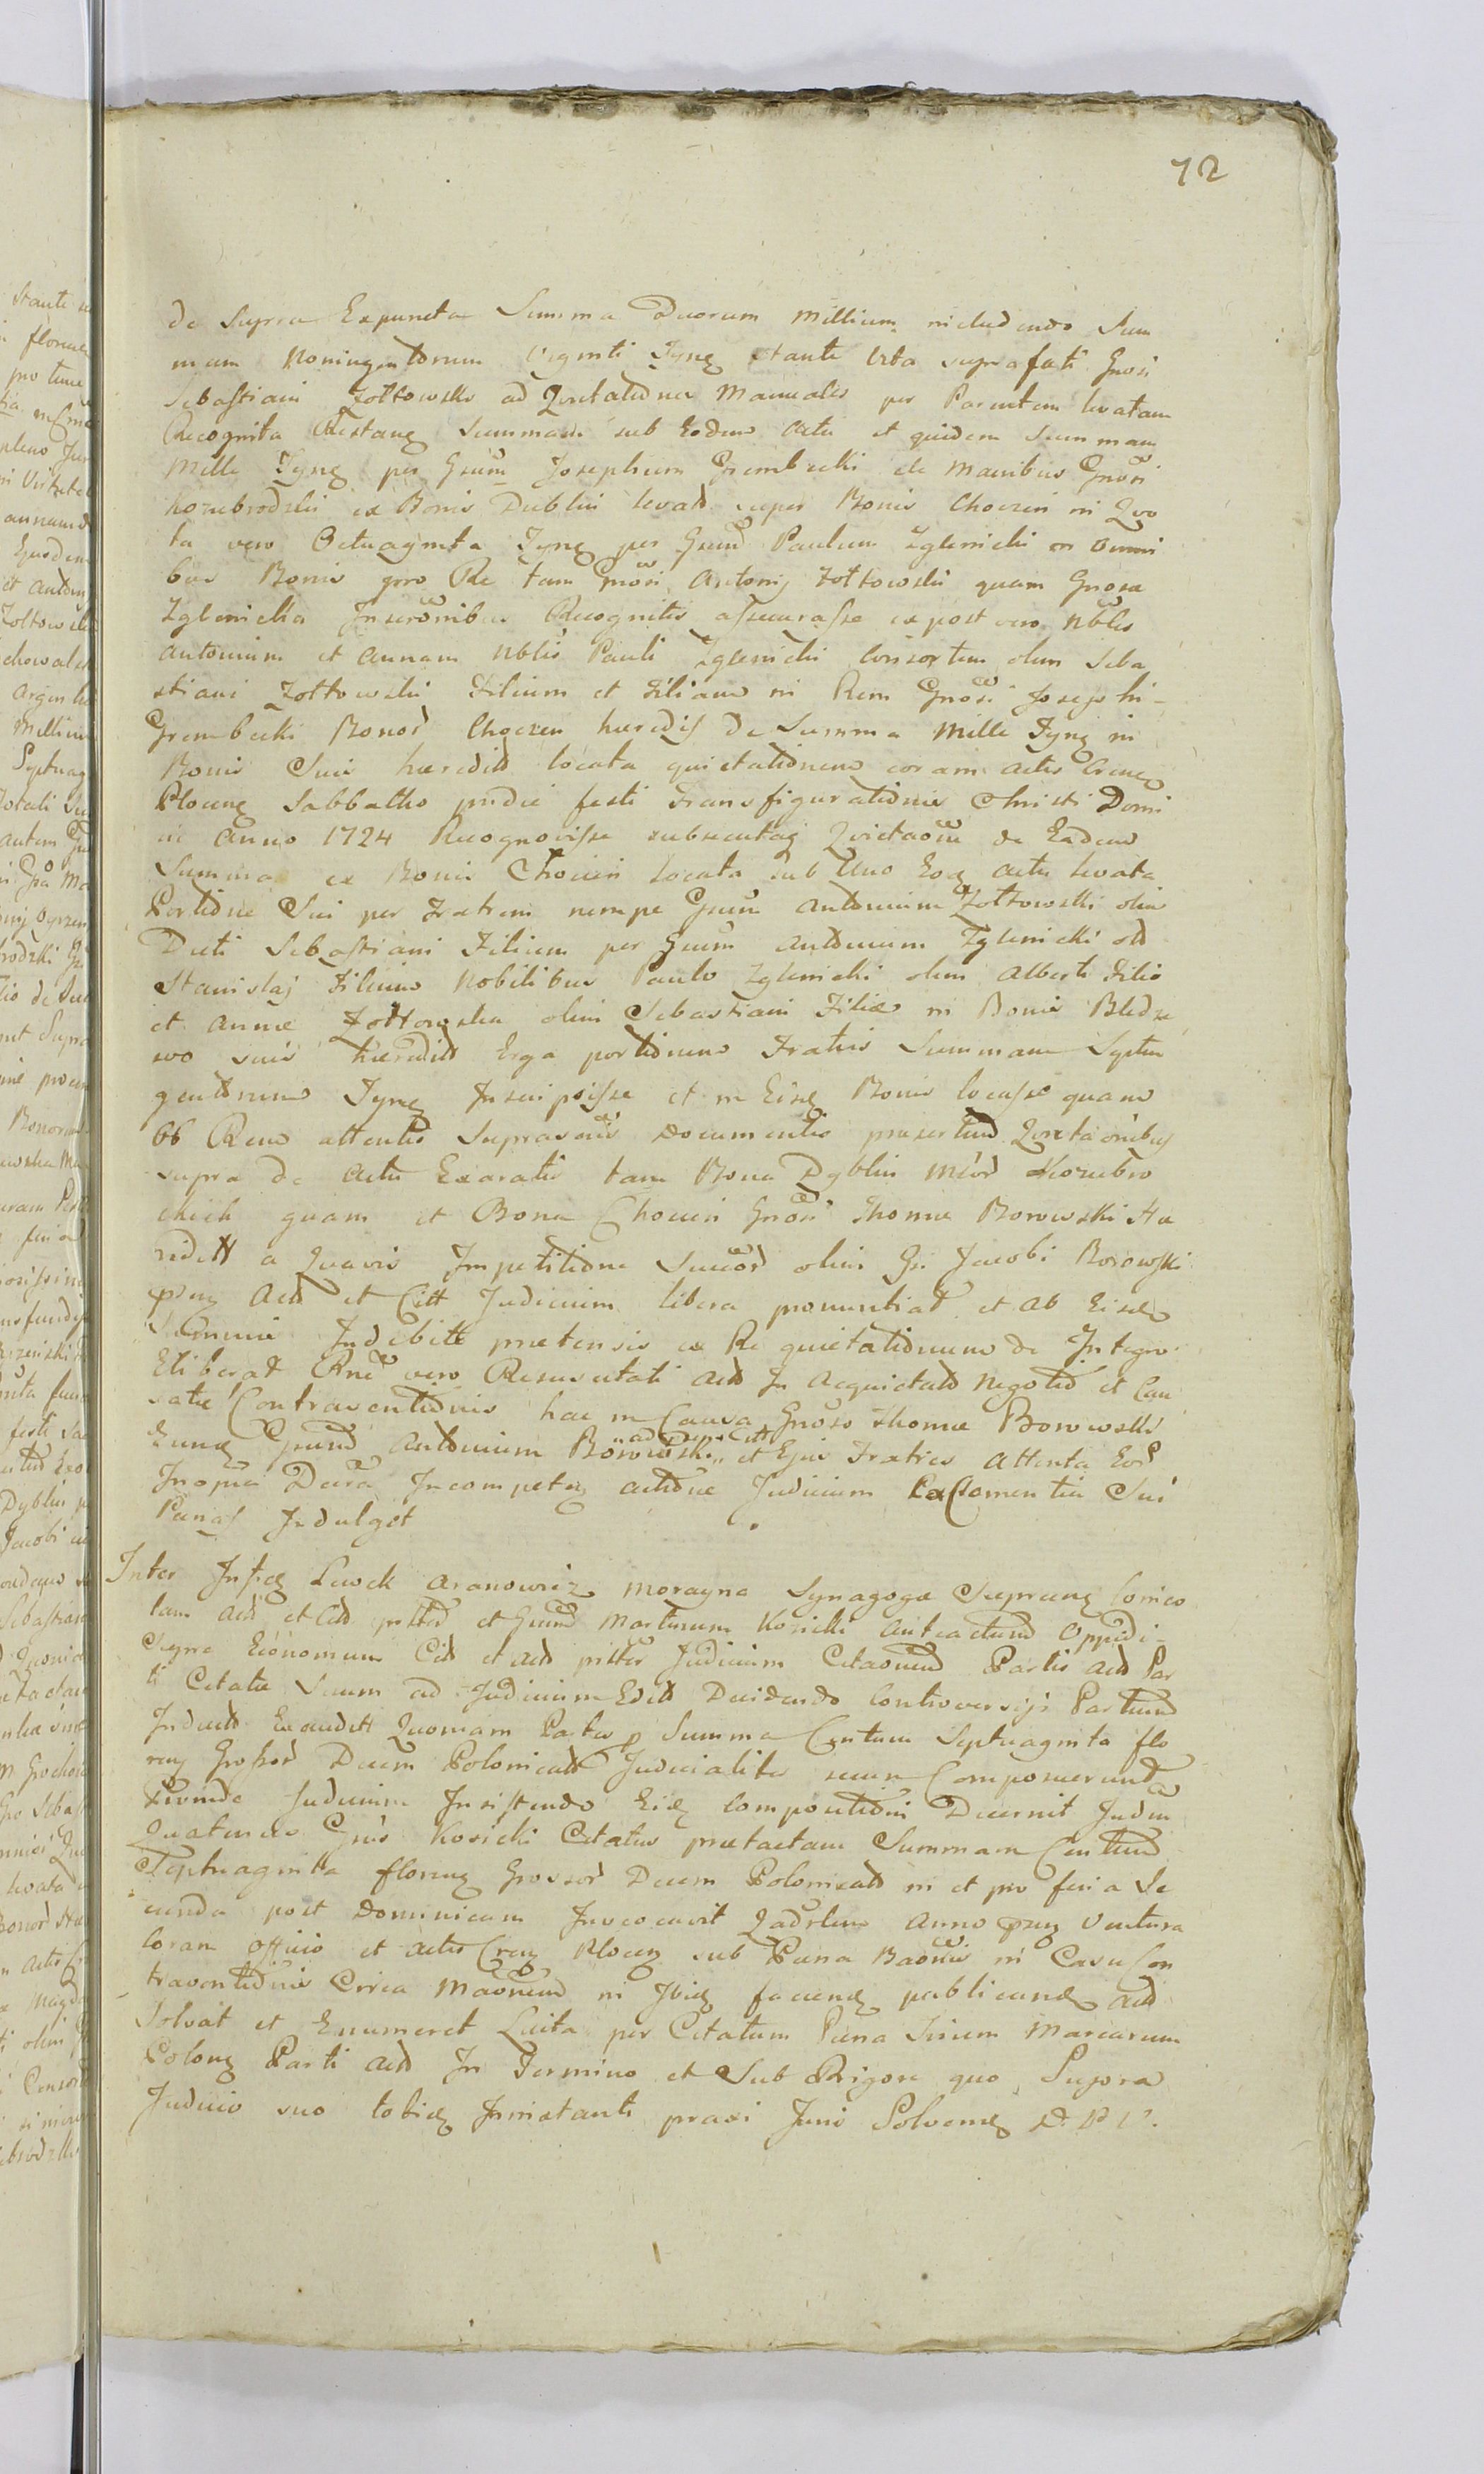 72
de Supra Expuncta Summa Duorum Millium includendo Sum
mam Noningentorum Viginti Tynf stante Vita suprafati Gnosi
Sebastiani Zołtowski ad Qvietationes Manuales per Parentem levatam
Recognita Restanq Summam sub Eodem Actu et quidem Summam
Mille Tynf per Gsum Josephum Grembecki de Manibus Gnosi
Kozubrodzki ex Bonis Dublin levatt super Bonis Choczen in Qvo
ta vero Octuaginta Tynf per Gsum Paulum Zglenicki in Omni
bus Bonis pro Re tam Gnosi Antonij Zołtowski quam Gnosæ
Zglenicka Inscronibus Recognitis assecurasse expost vero Nbles
Antonium et Annam Nblis Pauli Zglenicki Consortem olim Seba
stiani Zołtowski Filium et Filiam in Rem Gnosi Josephi
Grembecki Bonor Choczen hæredis De Summa Mille Tynf in
Bonis Suis hæreditt locata quietationem coram Actis Crenq
Plocenq Sabbatho pridie festi Transfigurationis Christi Domi
ni Anno 1724 Recognovisse subsecutaq Qvietaone de Eadem
Summa ex Bonis Chocien locata sub Uno Eoq Actu levata
Portione Sui per Fratrem nempe Gsum Antonium Zołtowski olim
Dicti Sebastiani Filium per Gsum Antonium Zglenicki olt
Stanislaj Filium Nobilibus Paulo Zglenicki olim Alberti Filio
et Annæ Zołtowska olim Sebastiani Filiæ in Bonis Bledze
wo suis hæreditt Erga portionem Fratris Summam Septin
gentorum Tynf Inscripsisse et in Eisq Bonis locasse quam
Ob Rem attentis Suprascris Documentis præsertim Qvietaonibus
supra de Actu Exaratis tam Bona Dyblin Mior Kozubro
dzkich quam et Bona Chocien Gnosi Thomæ Borowski Hæ
reditt a Quavis Impetitione Succor olim Gsi Jacobi Borowski
pnq Actt et Citt Judicium libera pronuntiat et Ab Eisdq
Summis Indebite prætensis ex Re quietationum de Integro
Eliberat Rne vero Resuscitati Actt In Acquietatt Negotio et Cau
satæ Contraventionis hac in Causa Gnoso Thomæ Borowski
Eunq Gsum Antonium Borowski „ad prns Citt„ et Ejus Fratres Attenta Eor
Inopia Decra Incompetenq Actione Judicium Ex Clementia Sui
Pænas Indulget
Inter Infiq Lewek Aronowicz Morayne Synagogæ Sieprcenq Coinco
lam Act et Citt psttes et Gsum Martinum Kosicki Anteactum Oppidi
Sepre Economum Citt et Actt psttes Judicium Citaonem Partis Actt Par
ti Citatæ Suum ad Judicium Editt Decidendo Controversijs Partium
Inductt Exauditt Quoniam Partes p Summa Centum Septuaginta flo
renq Grossor Decem Polonicalt Judicialiter secum Composuerunt
Proinde Judicium Insistendo Eidq Compositioni Decernit Judm
Quatenus Gsus Kosicki Citatus prætactam Summam Centum
Septuaginta florenq Grossor Decem Polonicalt in et pro feria Se
cunda post Dominicam Invocavit Qadrlem Anno prnq Ventura
Coram Officio et Actis Crenq Plocenq sub Pæna Baonis in Casu Con
traventionis Circa Maonem in Ibiq faciend publicand Act
Solvat et Enumeret Luita per Citatum Pæna Trium Marcarum
Polonq Parti Actt In Termino et Sub Rigore quo Supra
Judicio suo totieq Instanti praxi Juris Solvend D. P. V.